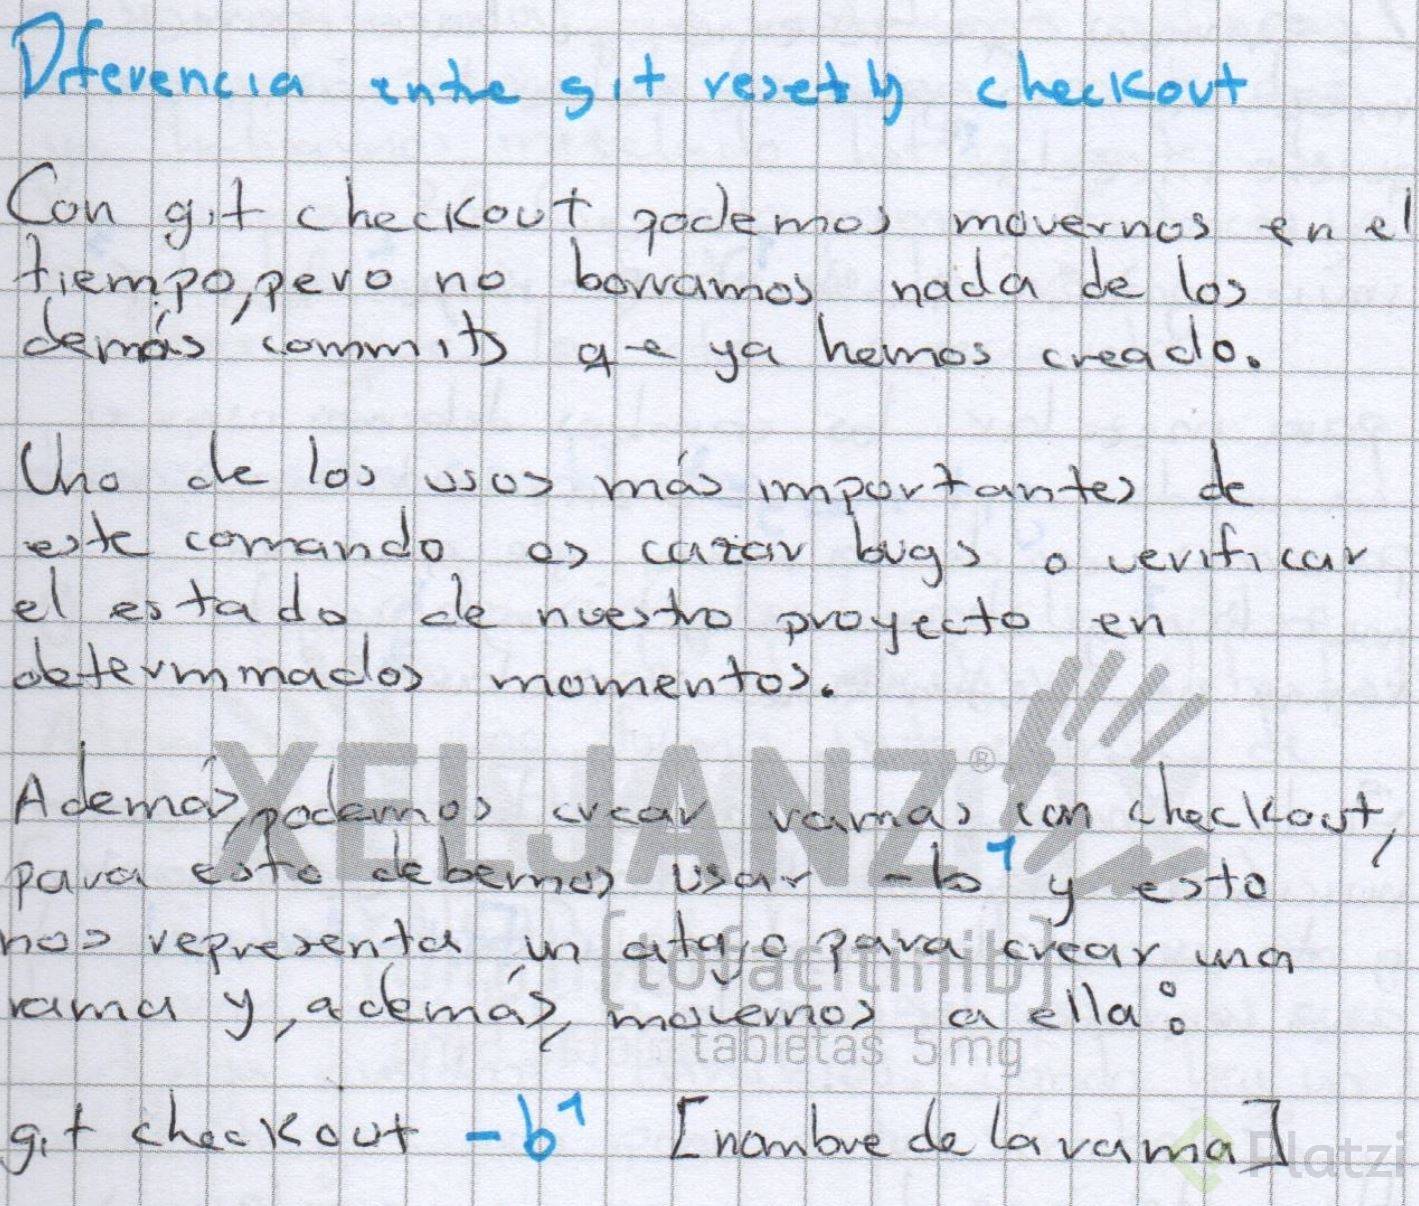 Diferencia entre git reset y checkout
Con git checkout podemos movernos en el
tiempo, pero no borramos nada de los
demás commits que ya hemos creado.
Uno de los usos más importantes de
este comando es cazar bugs o verificar
el estado de nuestro proyecto en
determinados momentos.
XELJANZ®
Además, podemos crear ramas con checkout,
para esto debemos usar -b¹ y esto
nos representa un atajo para crear una
[tofacitinib]
rama y, además, movernos a ella:
tabletas 5 mg
git checkout -b¹ [nombre de la rama]
Platzi